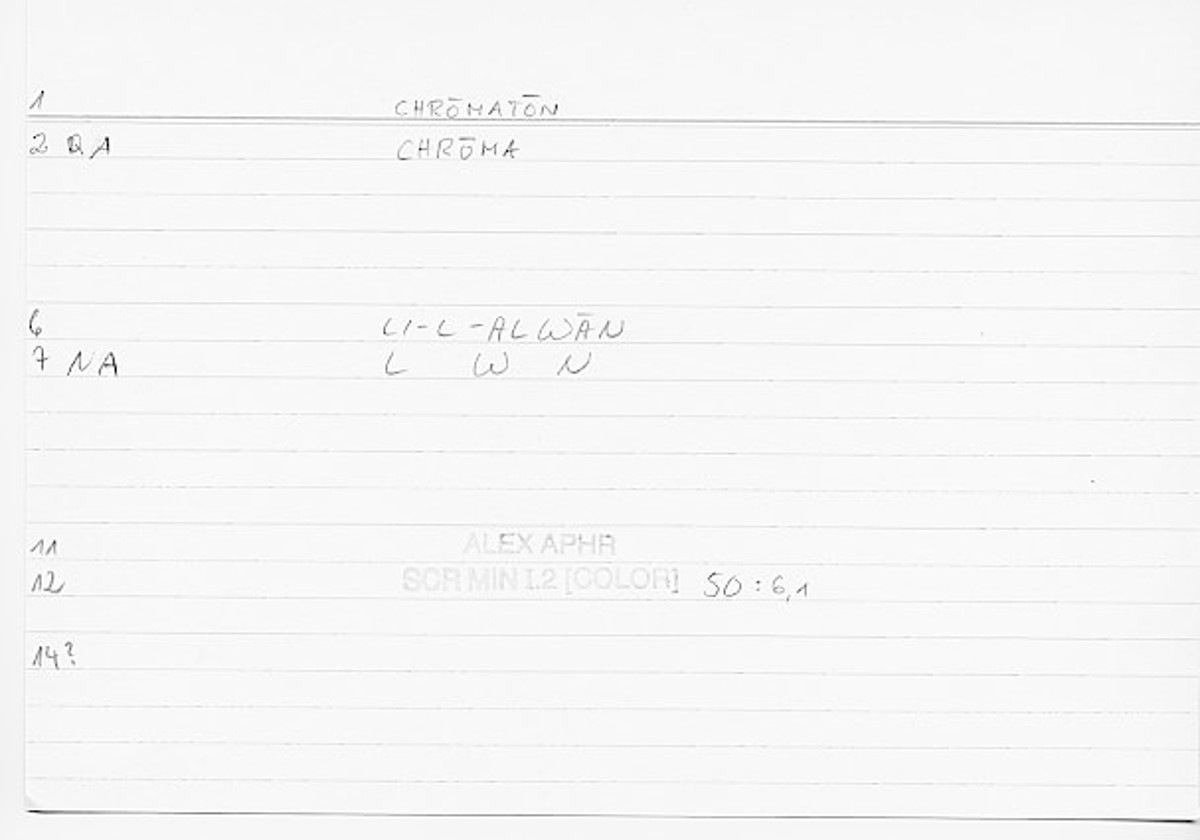 1 CHRŌMATŌN
2 QA CHRŌMA
6 LI-L-ALWĀN
7 NA L W N
11 ALEX APHR
12 SCR MIN I.2 [COLOR] 50:6,1
14?